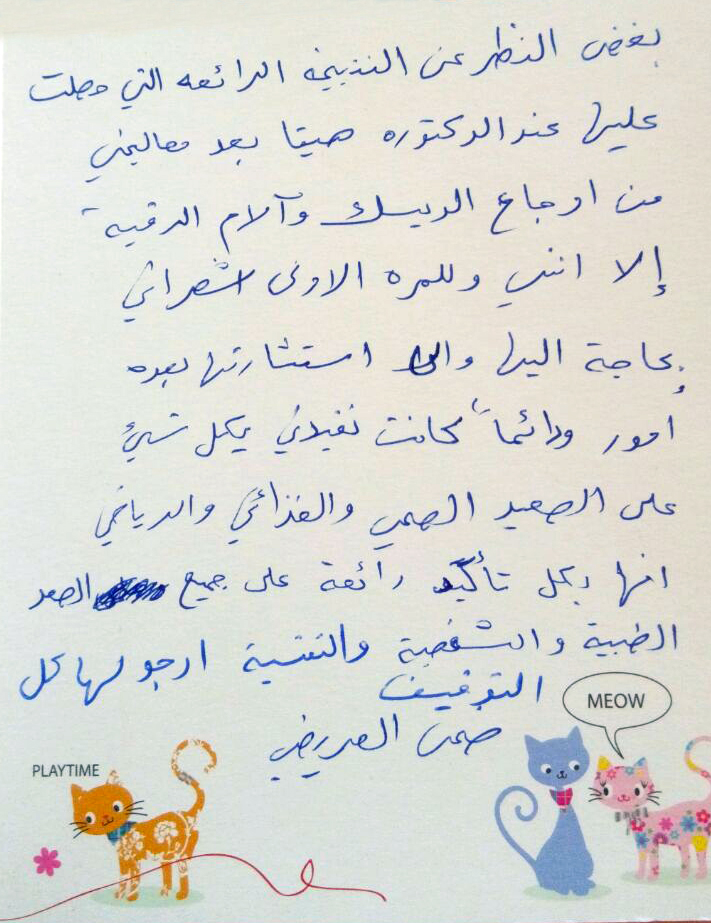 بغض النظر عن النتيجة الرائعه التي حصلت
عليها عند الدكتوره هيتا بعد معاليجتي
من اوجاع الديسك وآلام الرقبة
إلا انني وللمره الاولى اشعر اني
بحاجة اليها والى استشارتها بعده
امور ودائماً كانت تفيدني بكل شيئ
على الصعيد الصحي والغذائي والرياضي
انها بكل تأكيد رائعة على جميع الصعد
الطبية والشخصية والنفسية ارجو لها كل
التوفيق
MEOW
PLAYTIME